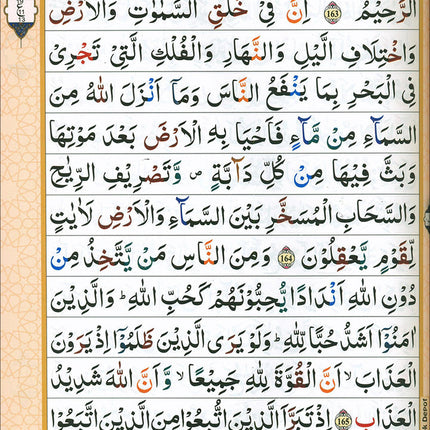 الرَّحِيْمُ ۝163 اِنَّ فِيْ خَلْقِ السَّمٰوٰتِ وَالْاَرْضِ
وَاخْتِلَافِ الَّيْلِ وَالنَّهَارِ وَالْفُلْكِ الَّتِيْ تَجْرِيْ
فِي الْبَحْرِ بِمَا يَنْفَعُ النَّاسَ وَمَآ اَنْزَلَ اللّٰهُ مِنَ
السَّمَآءِ مِنْ مَّآءٍ فَاَحْيَا بِهِ الْاَرْضَ بَعْدَ مَوْتِهَا
وَبَثَّ فِيْهَا مِنْ كُلِّ دَآبَّةٍ ۪ وَّتَصْرِيْفِ الرِّيٰحِ
وَالسَّحَابِ الْمُسَخَّرِ بَيْنَ السَّمَآءِ وَالْاَرْضِ لَاٰيٰتٍ
لِّقَوْمٍ يَّعْقِلُوْنَ ۝164 وَمِنَ النَّاسِ مَنْ يَّتَّخِذُ مِنْ
دُوْنِ اللّٰهِ اَنْدَادًا يُّحِبُّوْنَهُمْ كَحُبِّ اللّٰهِ ؕ وَالَّذِيْنَ
اٰمَنُوْٓا اَشَدُّ حُبًّا لِّلّٰهِ ؕ وَلَوْ يَرَى الَّذِيْنَ ظَلَمُوْٓا اِذْ يَرَوْنَ
الْعَذَابَ ۙ اَنَّ الْقُوَّةَ لِلّٰهِ جَمِيْعًا ۙ وَّاَنَّ اللّٰهَ شَدِيْدُ
الْعَذَابِ ۝165 اِذْ تَبَرَّاَ الَّذِيْنَ اتُّبِعُوْا مِنَ الَّذِيْنَ اتَّبَعُوْا